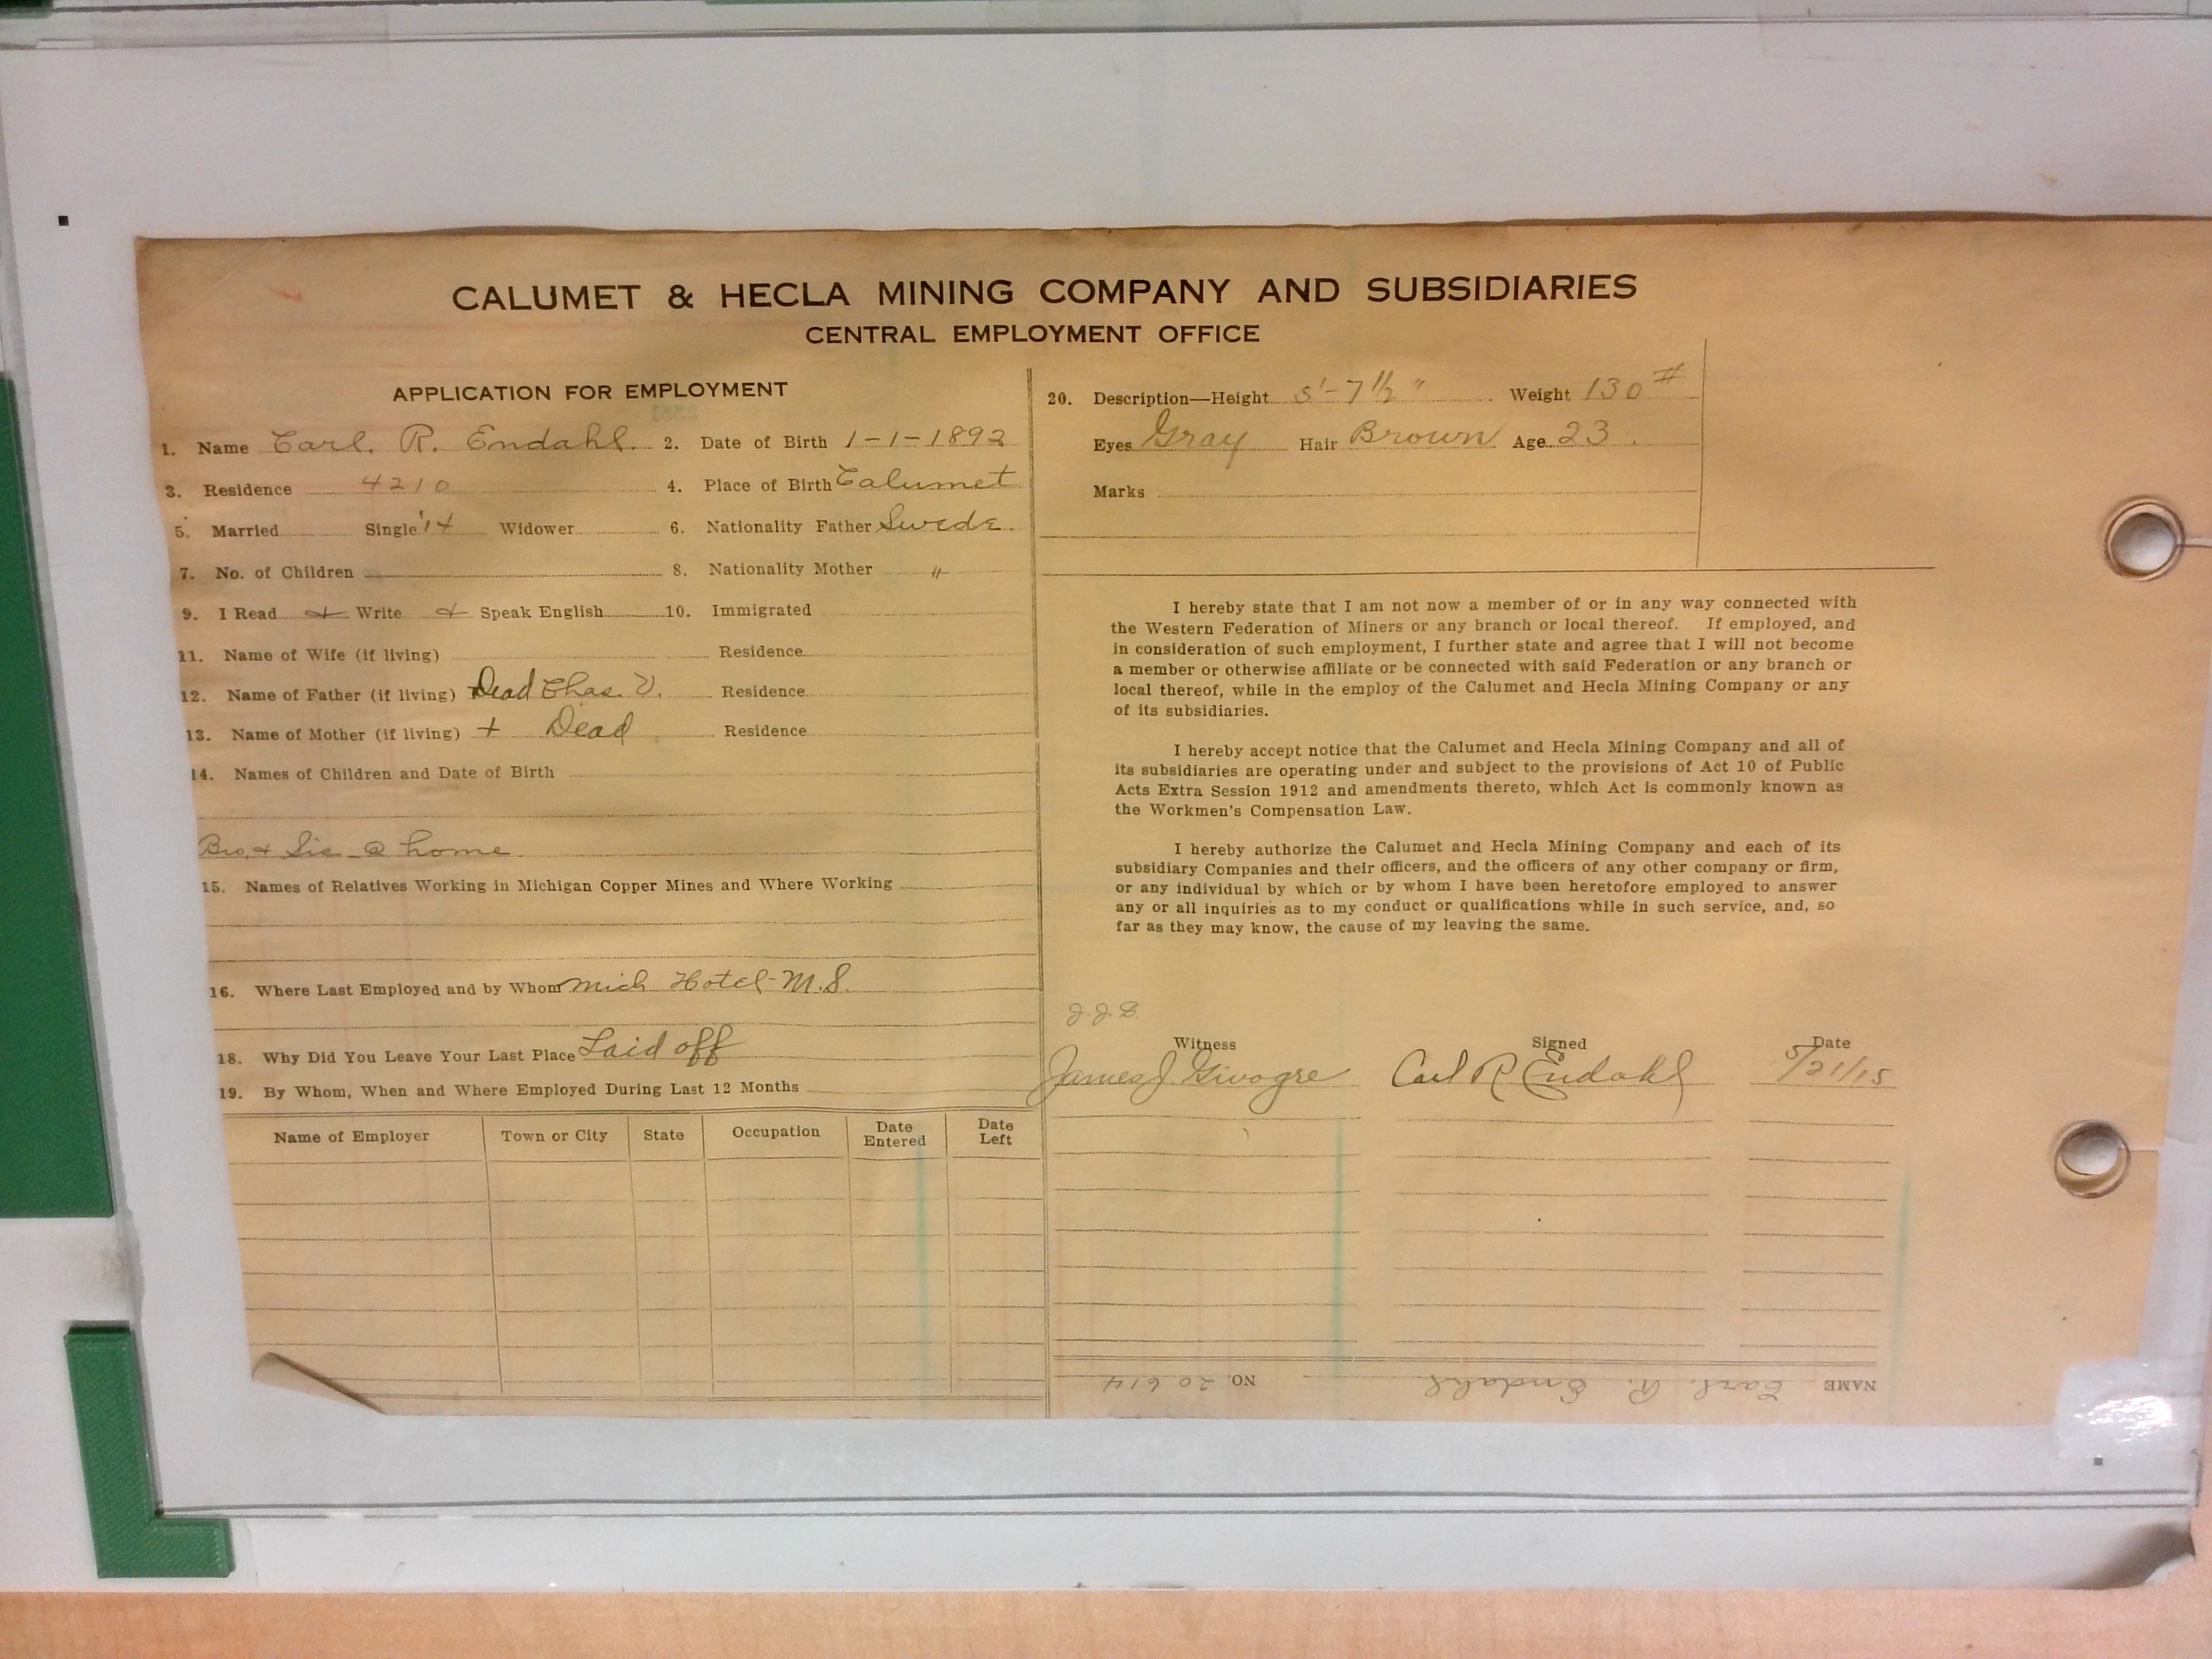 CALUMET & HECLA MINING COMPANY AND SUBSIDIARIES
CENTRAL EMPLOYMENT OFFICE
APPLICATION FOR EMPLOYMENT
1. Name Carl. R. Endahl. 2. Date of Birth 1-1-1892
3. Residence 4210 4. Place of Birth Calumet
5. Married Single '14 Widower 6. Nationality Father Swede.
7. No. of Children 8. Nationality Mother "
9. I Read + Write + Speak English 10. Immigrated
11. Name of Wife (if living) Residence
12. Name of Father (if living) Dead Chas. V. Residence
13. Name of Mother (if living) + Dead Residence
14. Names of Children and Date of Birth
Bro. + Sis @ home
15. Names of Relatives Working in Michigan Copper Mines and Where Working
16. Where Last Employed and by Whom Mich Hotel-M.S.
18. Why Did You Leave Your Last Place Laid off
19. By Whom, When and Where Employed During Last 12 Months
Name of Employer Town or City State Occupation Date Entered Date Left
20. Description—Height 5'-7 1/2" Weight 130#
Eyes Gray Hair Brown Age 23.
Marks
I hereby state that I am not now a member of or in any way connected with
the Western Federation of Miners or any branch or local thereof. If employed, and
in consideration of such employment, I further state and agree that I will not become
a member or otherwise affiliate or be connected with said Federation or any branch or
local thereof, while in the employ of the Calumet and Hecla Mining Company or any
of its subsidiaries.
I hereby accept notice that the Calumet and Hecla Mining Company and all of
its subsidiaries are operating under and subject to the provisions of Act 10 of Public
Acts Extra Session 1912 and amendments thereto, which Act is commonly known as
the Workmen's Compensation Law.
I hereby authorize the Calumet and Hecla Mining Company and each of its
subsidiary Companies and their officers, and the officers of any other company or firm,
or any individual by which or by whom I have been heretofore employed to answer
any or all inquiries as to my conduct or qualifications while in such service, and, so
far as they may know, the cause of my leaving the same.
J.J.G.
Witness Signed Date
James J. Carl R Endahl 5/21/15
NAME Carl. R. Endahl. NO. 20614